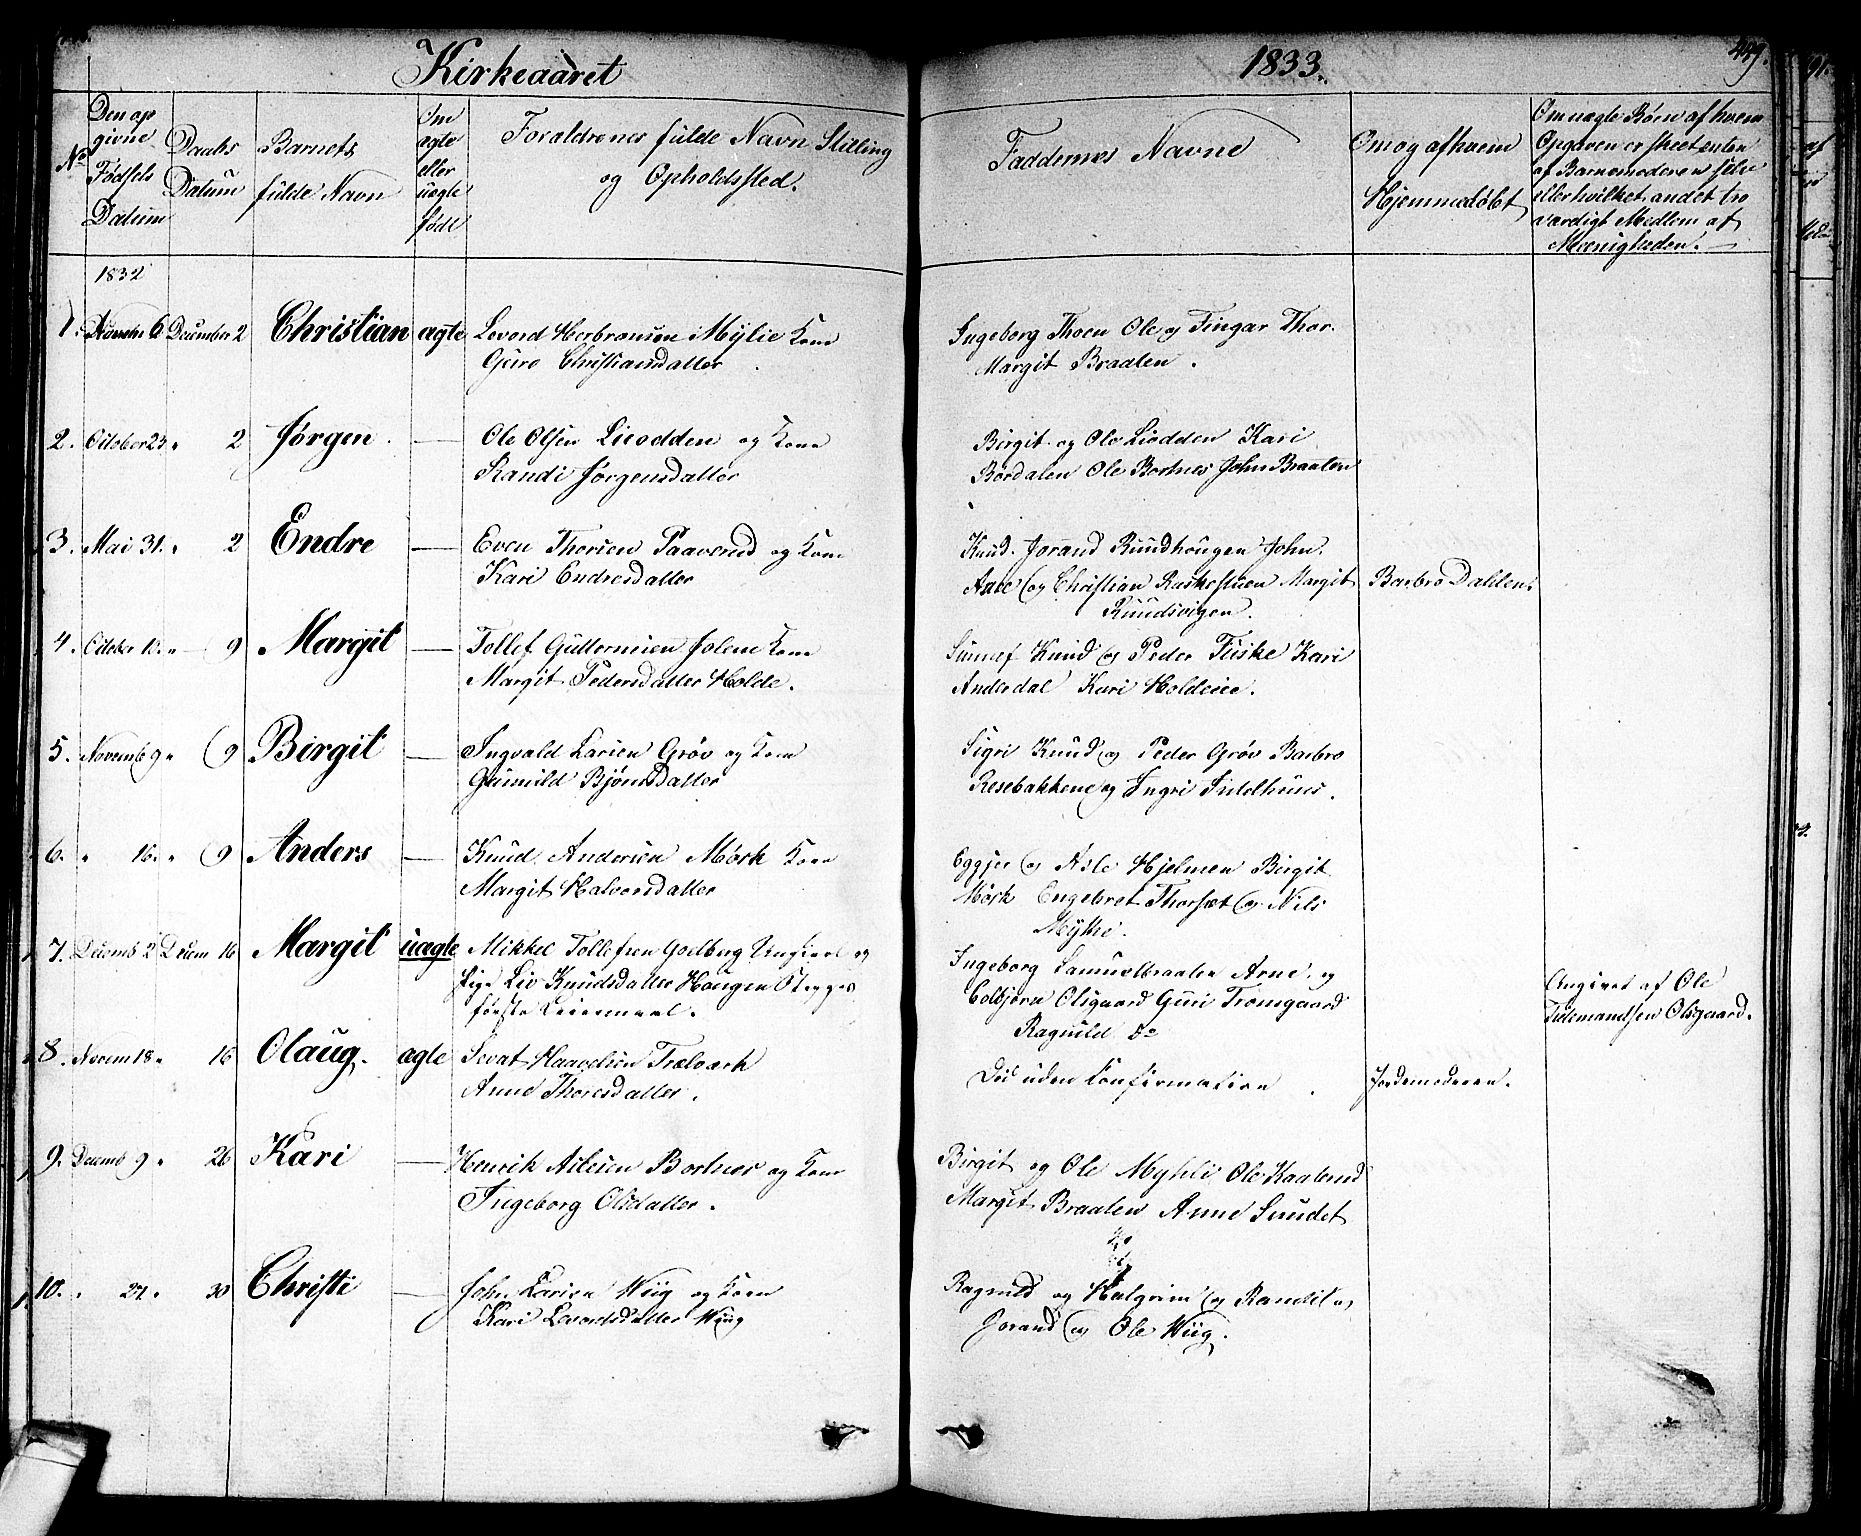 Kirkeaaret 1833. 449.
No
Den op
givne
Fødsels
Datum
Daabs
Datum
Barnets
fulde Navn
Om
ægte
eller
uægte
født
Forældrenes fulde Navn Stilling
og Opholdssted.
Faddernes Navne
Om og af hvem
Hjemmedøbt
Om uægte Børn af hvem
Opgaven er skeet enten
af Barnemoderen selv
eller hvilket andet tro
værdigt Medlem af
Menigheden.
1832
1. Novem 6 December 2 Christian ægte Levord Herbransen Mÿlie Kone
Guro Christiansdatter
Ingeborg Thoen Ole og Fingar Thor.
Margit Braaten.
2. October 23 " 2 Jørgen. — Ole Olsen Lieodden og Kone
Randi Jørgensdatter
Birgit og Ole Liodden Kari
Bordalen Ole Bortnes John Braaten
3. Mai 31. " 2 Endre — Even Thorsen Paaverud og Kone
Kari Endresdatter
Knud. Jorand Ruudhougen John.
Aase og Christian Raskestuen Margit
Ruudsvigen.
Barbro Dahlen.
4. October 12. " 9 Margit — Tollef Guttormsen Solem Kone
Margit Pedersdatter Holde.
Sünnef Knud og Peder Fuske Kari
Anderdal Kari Holdeie.
5. Novemb 9 " 9 Birgit — Ingvald Larsen Grøv og Kone
Gunnild Bjørnsdatter
Sigri Knud og Peder Grøv Barbro
Resebakken og Ingri Sülelhuus.
6. " 16. " 9 Anders — Knud Andersen Mørk Kone
Margit Halvorsdatter
Eggjer og Asle Hjelmen Birgit
Mørk Engebret Thorsæt og Nils
Mÿhli.
7. Decemb 2 Decem 16 Margit uægte Mikkel Tollefsen Goelberg Ungkarl og
Pige Liv Knudsdatter Haugen
første Leiermaal.
Ingeborg Samuelbraaten Arne og
Colbjørn Olsgaard Guri Tromsgaard
Ragnild Do
Angivet af Ole
Tidemandsen Olsgaard.
8. Novem 18 " 16 Olaug. ægte Sevat Haavelsen Trælvark
Anne Thoresdatter.
Død uden Confirmation
Jordemoderen.
9. Decemb 9 " 26 Kari — Henrik Aslesen Bortnes og Kone
Ingeborg Olsdatter.
Birgit og Ole Myhli Ole Kaalrud
Margit Braaten Anne Sundet
10. " 27. " 30 Christi — John Larsen Wiig og Kone
Kari Levordsdatter Wiig
Ragnild og Halgrim og Randi
Jorand og Ole Wiig.